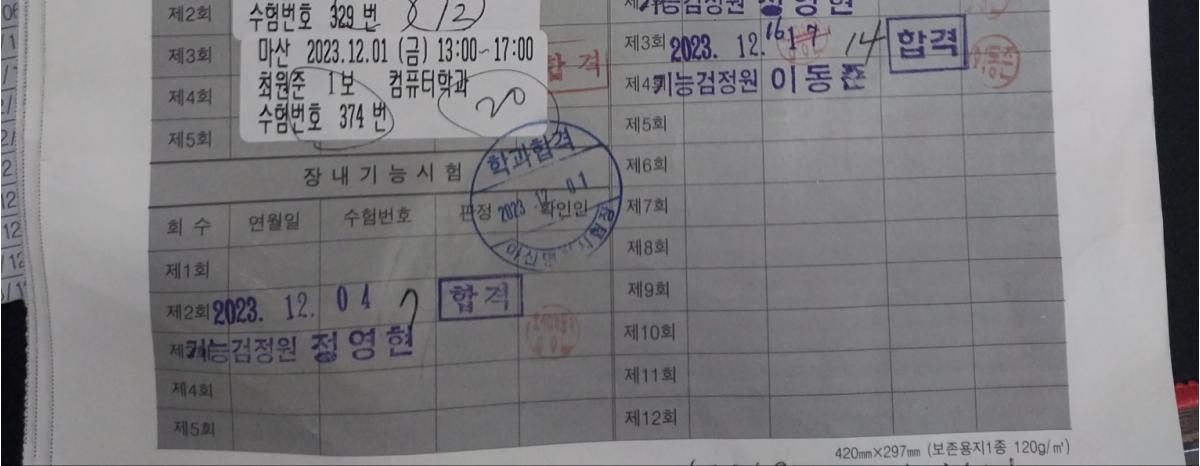 제2회
수험번호 329 번
12
제3회
마산 2023.12.01 (금) 13:00~17:00
합격
제4회
최원준 1보 컴퓨터학과
20
제5회
수험번호 374 번
학과합격
2023 12 01
장내기능시험
회 수 연월일 수험번호 판정 확인인
제1회
제2회 2023. 12. 04 7 합격
기능검정원 정영현
제4회
제5회
기능검정원 정영현
제3회 2023. 12. 16 17 14 합격
제4회 기능검정원 이동준
제5회
제6회
제7회
제8회
제9회
제10회
제11회
제12회
420㎜×297㎜ (보존용지1종 120g/㎡)